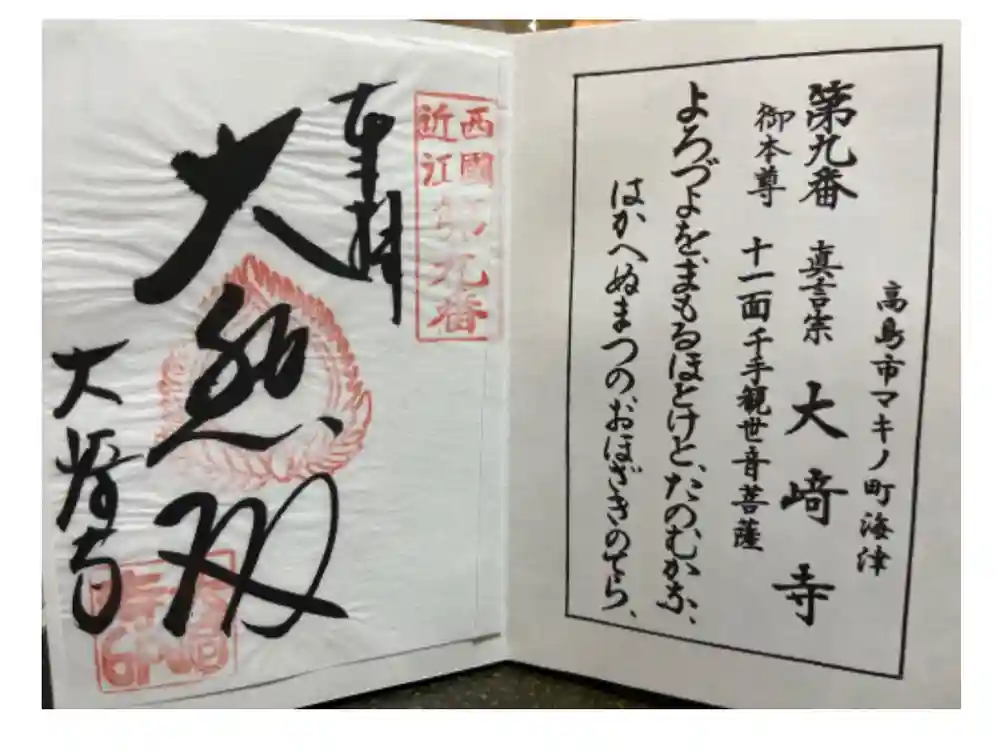 高島市マキノ町海津
第九番 真言宗 大﨑寺
御本尊 十一面千手観世音菩薩
よろづよを、まもるほとけと、たのむかな、
はかへぬまつの、おほざきのてら、
西國
近江
第九番
奉拝
大悲殿
大崎寺